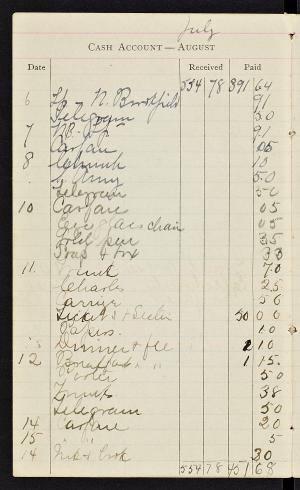 July
CASH ACCOUNT—AUGUST
Date Received Paid
554 78 391 64
6 N. Brookfield 91
Telegram 50
7 91
Carfare 05
8 Church 10
S. Army 50
Telegram 50
10 Carfare 05
Eye glass chain 05
Gold pen 35
Soap & box 38
11 Fruit 70
Charles 25
Carrier 50
Tickets & 50 00
Papers. 10
Dinner & fee 2 10
12 Breakfast " " 1 15
Porter 50
Fruit 38
Telegram 50
14 Carfare 20
15 " " 5
14 Ink & book 30
554 78 451 68